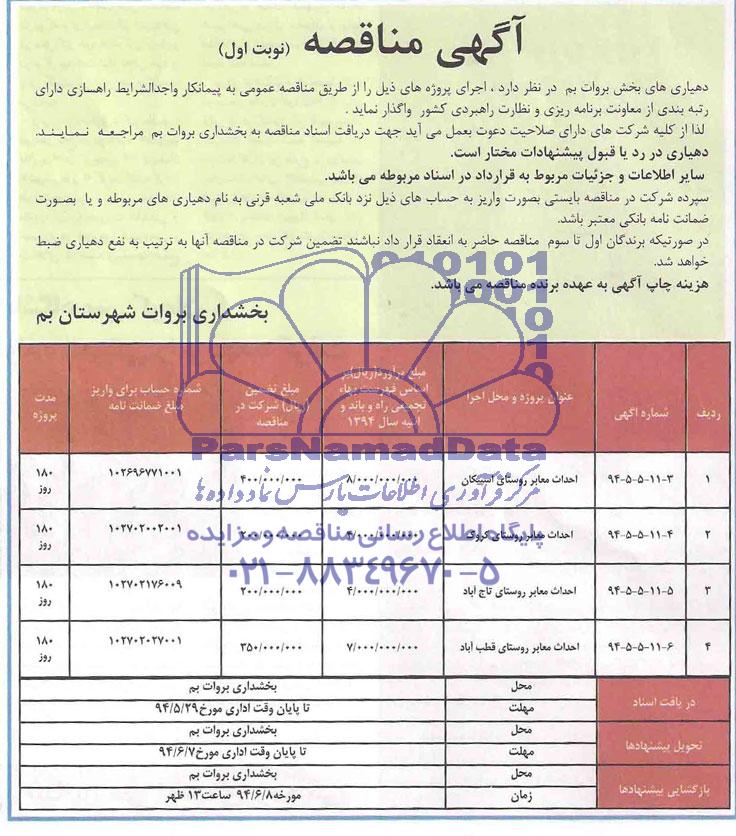 آگهی مناقصه (نوبت اول)
دهیاری های بخش بروات بم در نظر دارد ، اجرای پروژه های ذیل را از طریق مناقصه عمومی به پیمانکار واجدالشرایط راهسازی دارای
رتبه بندی از معاونت برنامه ریزی و نظارت راهبردی کشور واگذار نماید .
لذا از کلیه شرکت های دارای صلاحیت دعوت بعمل می آید جهت دریافت اسناد مناقصه به بخشداری بروات بم مراجعه نمایند.
دهیاری در رد یا قبول پیشنهادات مختار است.
سایر اطلاعات و جزئیات مربوط به قرارداد در اسناد مربوطه می باشد.
سپرده شرکت در مناقصه بایستی بصورت واریز به حساب های ذیل نزد بانک ملی شعبه قرنی به نام دهیاری های مربوطه و یا بصورت
ضمانت نامه بانکی معتبر باشد.
در صورتیکه برندگان اول تا سوم مناقصه حاضر به انعقاد قرار داد نباشند تضمین شرکت در مناقصه آنها به ترتیب به نفع دهیاری ضبط
خواهد شد.
هزینه چاپ آگهی به عهده برنده مناقصه می باشد.
بخشداری بروات شهرستان بم
ردیف شماره آگهی عنوان پروژه و محل اجرا مبلغ برآورد(ریال)بر اساس فهرست بهاء تجمیعی راه و باند و ابنیه سال ۱۳۹۴ مبلغ تضمین (ریال) شرکت در مناقصه شماره حساب برای واریز مبلغ ضمانت نامه مدت پروژه
۱ ۹۴-۵-۵-۱۱-۳ احداث معابر روستای اسپیکان ۸/۰۰۰/۰۰۰/۰۰۰ ۴۰۰/۰۰۰/۰۰۰ ۱۰۲۶۹۶۷۷۱۰۰۱ ۱۸۰ روز
۲ ۹۴-۵-۵-۱۱-۴ احداث معابر روستای کروک ۴/۰۰۰/۰۰۰/۰۰۰ ۲۰۰/۰۰۰/۰۰۰ ۱۰۲۷۰۲۰۰۲۰۰۱ ۱۸۰ روز
۳ ۹۴-۵-۵-۱۱-۵ احداث معابر روستای تاج آباد ۴/۰۰۰/۰۰۰/۰۰۰ ۲۰۰/۰۰۰/۰۰۰ ۱۰۲۷۰۲۱۷۶۰۰۹ ۱۸۰ روز
۴ ۹۴-۵-۵-۱۱-۶ احداث معابر روستای قطب آباد ۷/۰۰۰/۰۰۰/۰۰۰ ۳۵۰/۰۰۰/۰۰۰ ۱۰۲۷۰۲۰۲۷۰۰۱ ۱۸۰ روز
در یافت اسناد محل بخشداری بروات بم
مهلت تا پایان وقت اداری مورخ۹۴/۵/۲۹
تحویل پیشنهادها محل بخشداری بروات بم
مهلت تا پایان وقت اداری مورخ۹۴/۶/۷
بازگشایی پیشنهادها محل بخشداری بروات بم
زمان مورخه۹۴/۶/۸ ساعت۱۳ ظهر
ParsNamadData
مرکز فرآوری اطلاعات پارس نماد داده ها
پایگاه اطلاع رسانی مناقصه و مزایده
۰۲۱-۸۸۳۴۹۶۷۰-۵